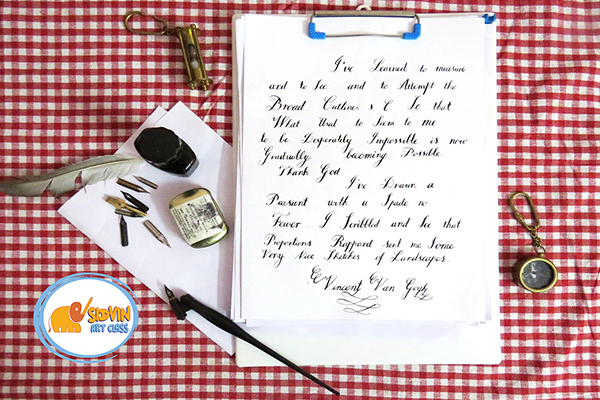 I've Learned to measure
and to See and to Attempt the
Broad Outlines & C So that
What Used to Seem to me
to be Desperately Impossible is now
Gradually becoming Possible.
Thank God
I've Drawn a
Peasant with a Spade no
Fewer. I Scribbled and See that
Proportions Rappard sent me Some
Very Nice Sketches of Landscapes.
Vincent Van Gogh
SIDVIN
ART CLASS